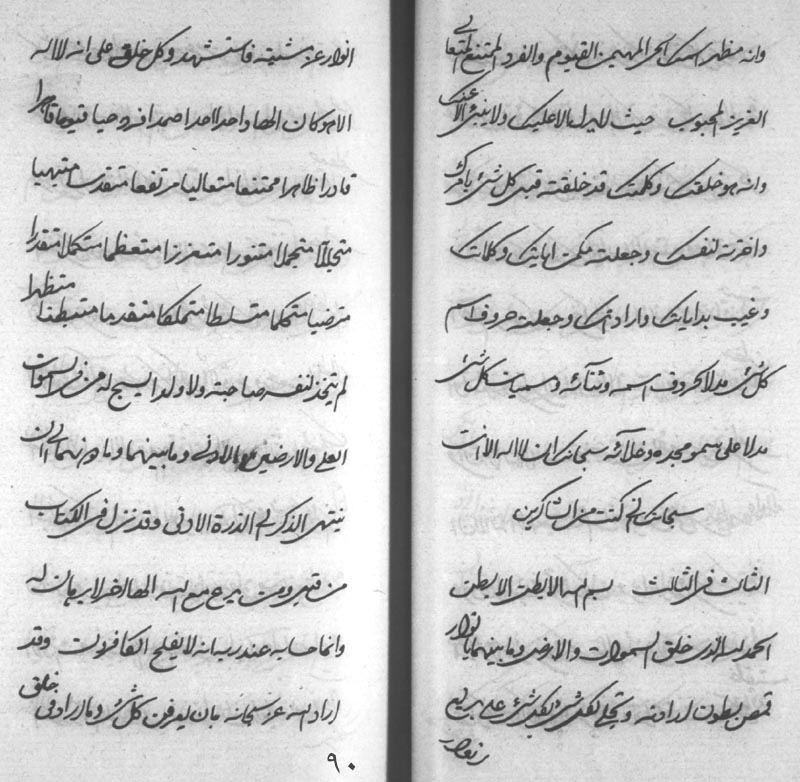 وانه مظهر اسمك الحی المهیمن القیوم والفرد الممتنع المتعالی
العزیز المحبوب حیث لایدل الا علیك ولاینبئ الا عنك
وانه هو خلقك وکلمتك قد خلقته قبل کل شئ بامرك
واخترته لنفسك وجعلته مکمن ایاتك وکلماتك
وغیب بدایاتك وارادتك وجعلت حروف اسم
کل شئ مدلا بحروف اسمه وثنائه وسمیات کل شئ
مدلا علی سمو مجده وجلاله سبحانك ان لا اله الا انت
سبحانك انی کنت من الشاکرین
الثالث فی الثالث بسم الله الابطن الابطن
الحمد لله الذی خلق السموات والارض وما بینهما بانوار
قمص بطون ارادته وتجلی لکل شئ بکل شئ علی
انوار عز مشیته فاستشهد وکل خلق علی انه لا اله
الا هو کان الها واحدا احدا صمدا فردا حیا قیوما قاهرا
قادرا ظاهرا ممتنعا متعالیا مرتفعا متقدسا متبهیا
متجللا متجملا متنورا متعززا متعظما متکملا متقدرا
مترضیا متسلطا متملکا متقدما متبطنا متظهرا
لم یتخذ لنفسه صاحبة ولا ولدا یسبح له من فی السموات
العلی والارضین الادنی وما بینهما الی ان
ینتهی الذکر الی الذرة الادنی وقد نزل فی الکتاب
من قبل ومن یدع مع الله الها اخر لا برهان له
وانما حسابه عند ربه انه لا یفلح الکافرون وقد
اراد الله عز سبحانه بان یعرفن کل شئ وما اراد فی خلق
۹۰